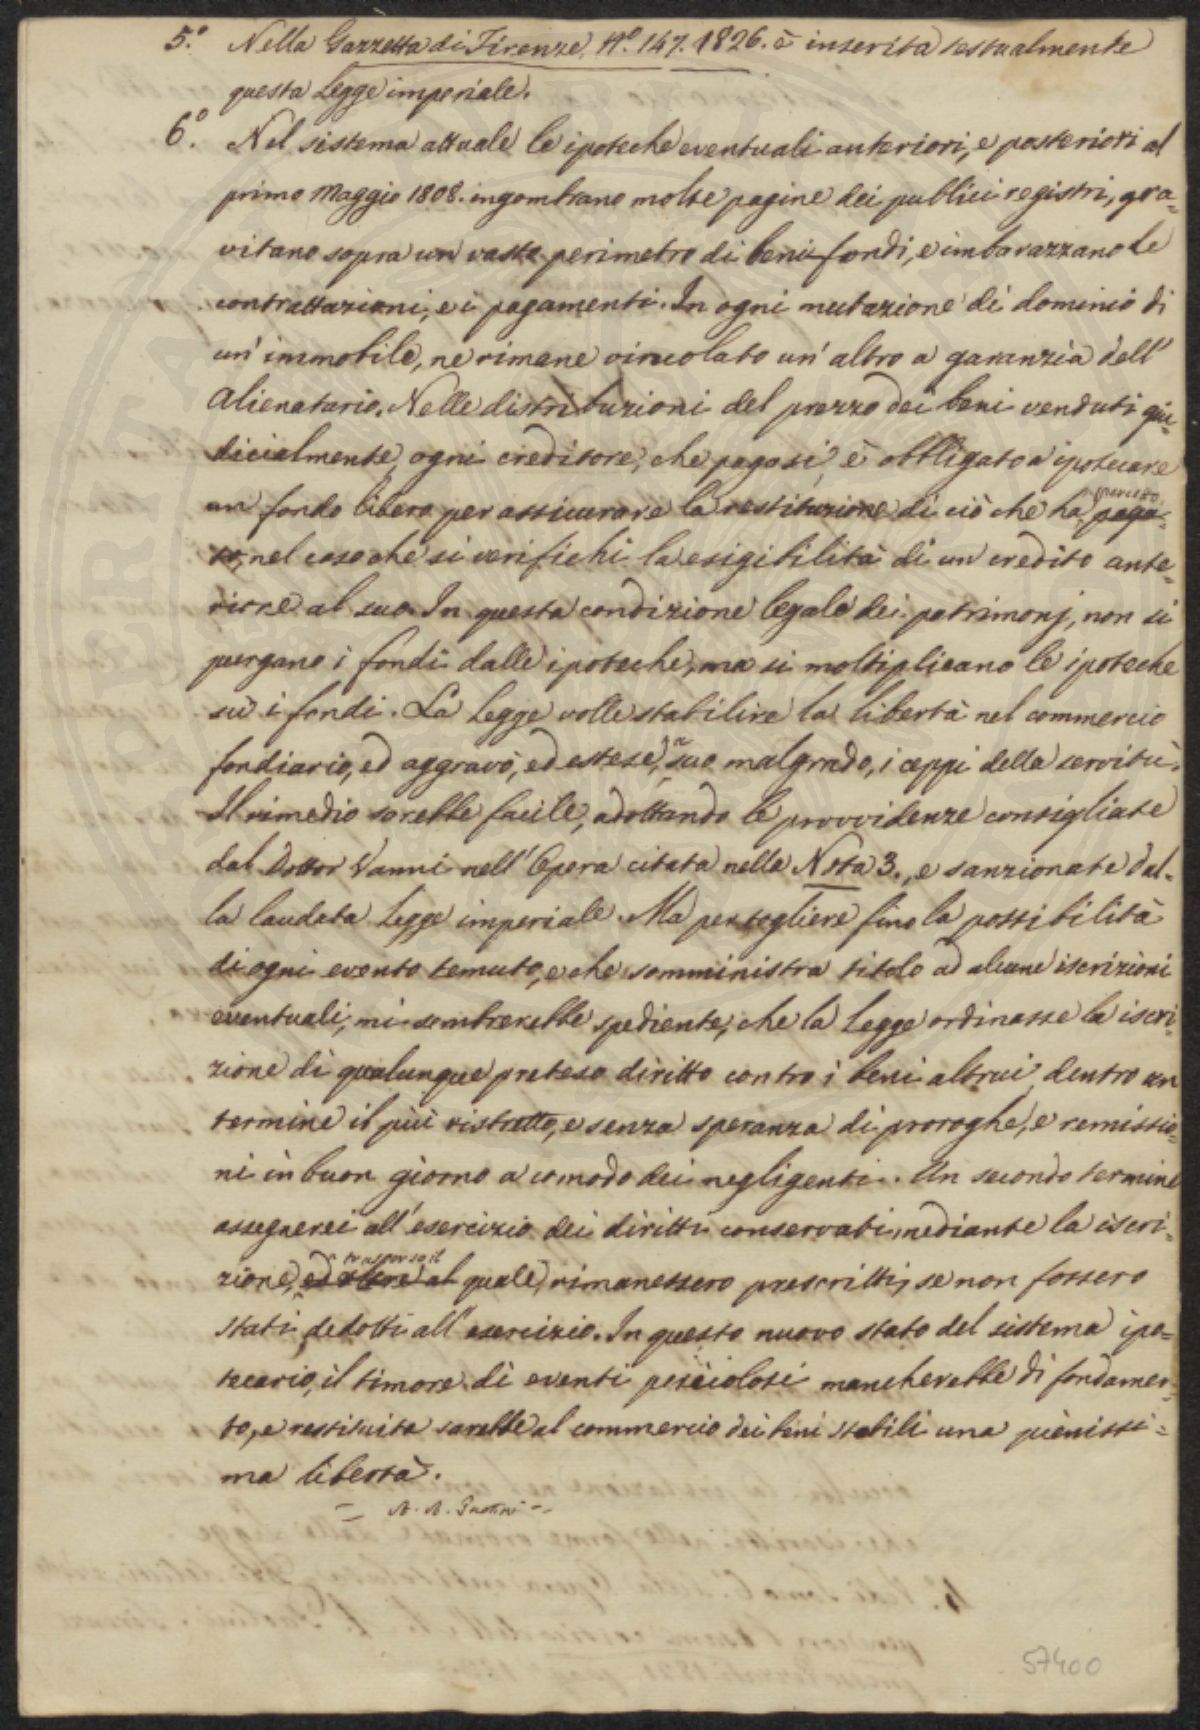 5.° Nella Gazzetta di Firenze N.° 147. 1826. è inserita testualmente
questa Legge imperiale.
6.° Nel sistema attuale le ipoteche eventuali anteriori, e posteriori al
primo Maggio 1808. ingombrano molte pagine dei publici registri, gra=
vitano sopra un vasto perimetro di beni fondi, e imbarazzano le
contrattazioni, e i pagamenti. In ogni mutazione di dominio di
un' immobile, ne rimane vincolato un' altro a garanzia dell'
Alienatario. Nelle distribuzioni del prezzo dei beni venduti giu=
dicialmente, ogni creditore, che pagasi, è obbligato a ipotecare
un fondo libero per assicurare la restituzione di ciò che ha paga=
to, nel caso che si verifichi la esigibilità di un credito ante=
riore al suo. In questa condizione legale dei patrimonj, non si
purgano i fondi dalle ipoteche, ma si moltiplicano le ipoteche
su i fondi. La Legge volle stabilire la libertà nel commercio
fondiario, ed aggravò, ed estese, a suo malgrado, i ceppi della servitù.
Il rimedio sarebbe facile, adottando le provvidenze consigliate
dal Dottor Vanni nell' Opera citata nella Nota 3., e sanzionate dal=
la laudata Legge imperiale. Ma per togliere fino la possibilità
di ogni evento temuto, e che somministra titolo ad alcune iscrizioni
eventuali, mi sembrerebbe spediente, che la Legge ordinasse la iscri=
zione di qualunque preteso diritto contro i beni altrui dentro un
termine il più ristretto, e senza speranza di proroghe, e remissio=
ni in buon giorno a comodo dei negligenti. Un secondo termine
assegnerei all' esercizio dei diritti conservati mediante la iscri=
zione, ed oltre al trascorso il quale, rimanessero prescritti, se non fossero
stati dedotti all' esercizio. In questo nuovo stato del sistema ipo=
tecario, il timore di eventi pericolosi mancherebbe di fondamen=
to, e restituita sarebbe al commercio dei beni stabili una pienissi=
ma libertà.
57400